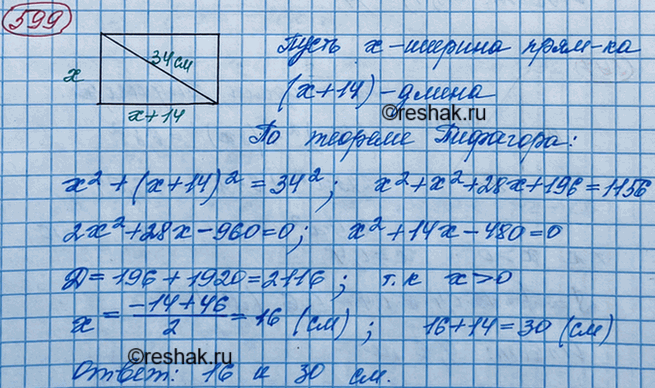 599
34 см
x
x+14
Пусть x - ширина прям-ка
(x+14) - длина
©reshak.ru
По теореме Пифагора:
x² + (x+14)² = 34²; x²+x²+28x+196=1156
2x²+28x-960=0; x²+14x-480=0
D=196+1920=2116; т.к x>0
x = \frac{-14+46}{2} = 16 (см); 16+14=30 (см)
©reshak.ru
Ответ: 16 и 30 см.